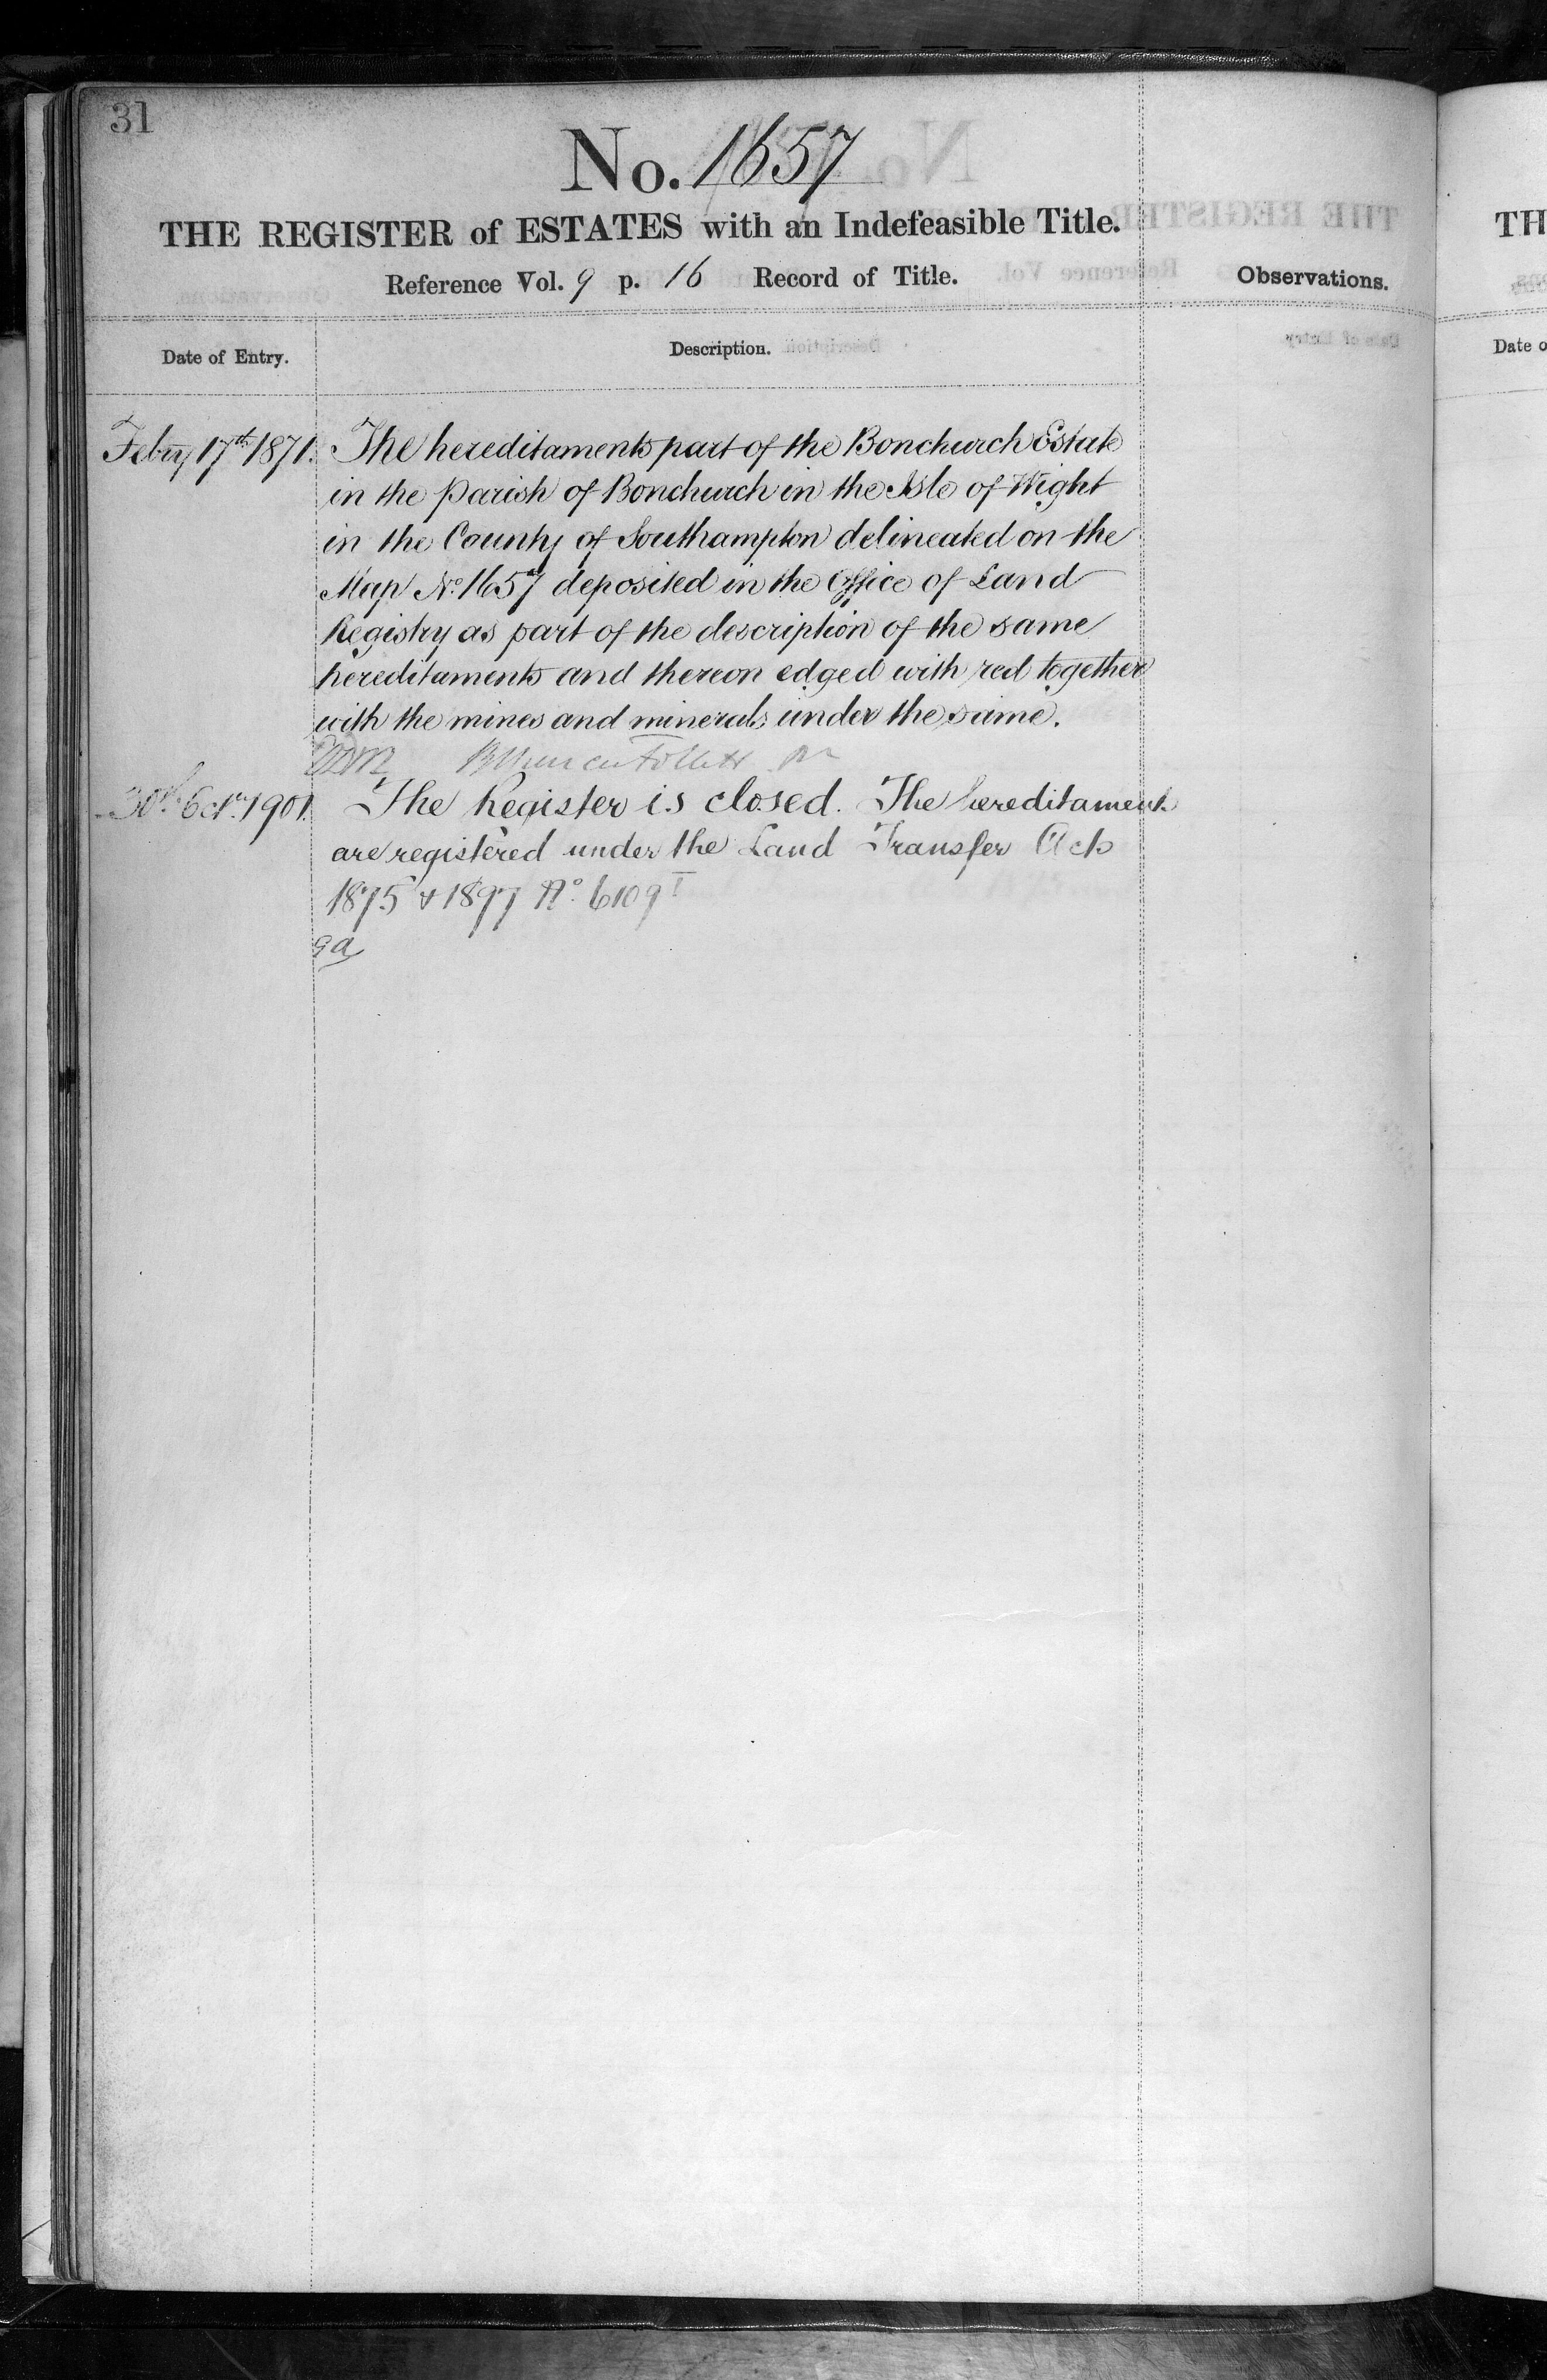 31
No. 1657
THE REGISTER of ESTATES with an Indefeasible Title.
Reference Vol. 9 p. 16 Record of Title.
Observations.
Date of Entry.
Description.
Febry 17th 1871. The hereditaments part of the Bonchurch Estate
in the Parish of Bonchurch in the Isle of Wight
in the County of Southampton delineated on the
Map No. 1657 deposited in the Office of Land
Registry as part of the description of the same
hereditaments and thereon edged with red together
with the mines and minerals under the same.
30th Octr. 1901. The Register is closed. The hereditaments
are registered under the Land Transfer Acts
1875 & 1897 No. 6109 I
TH
Date o